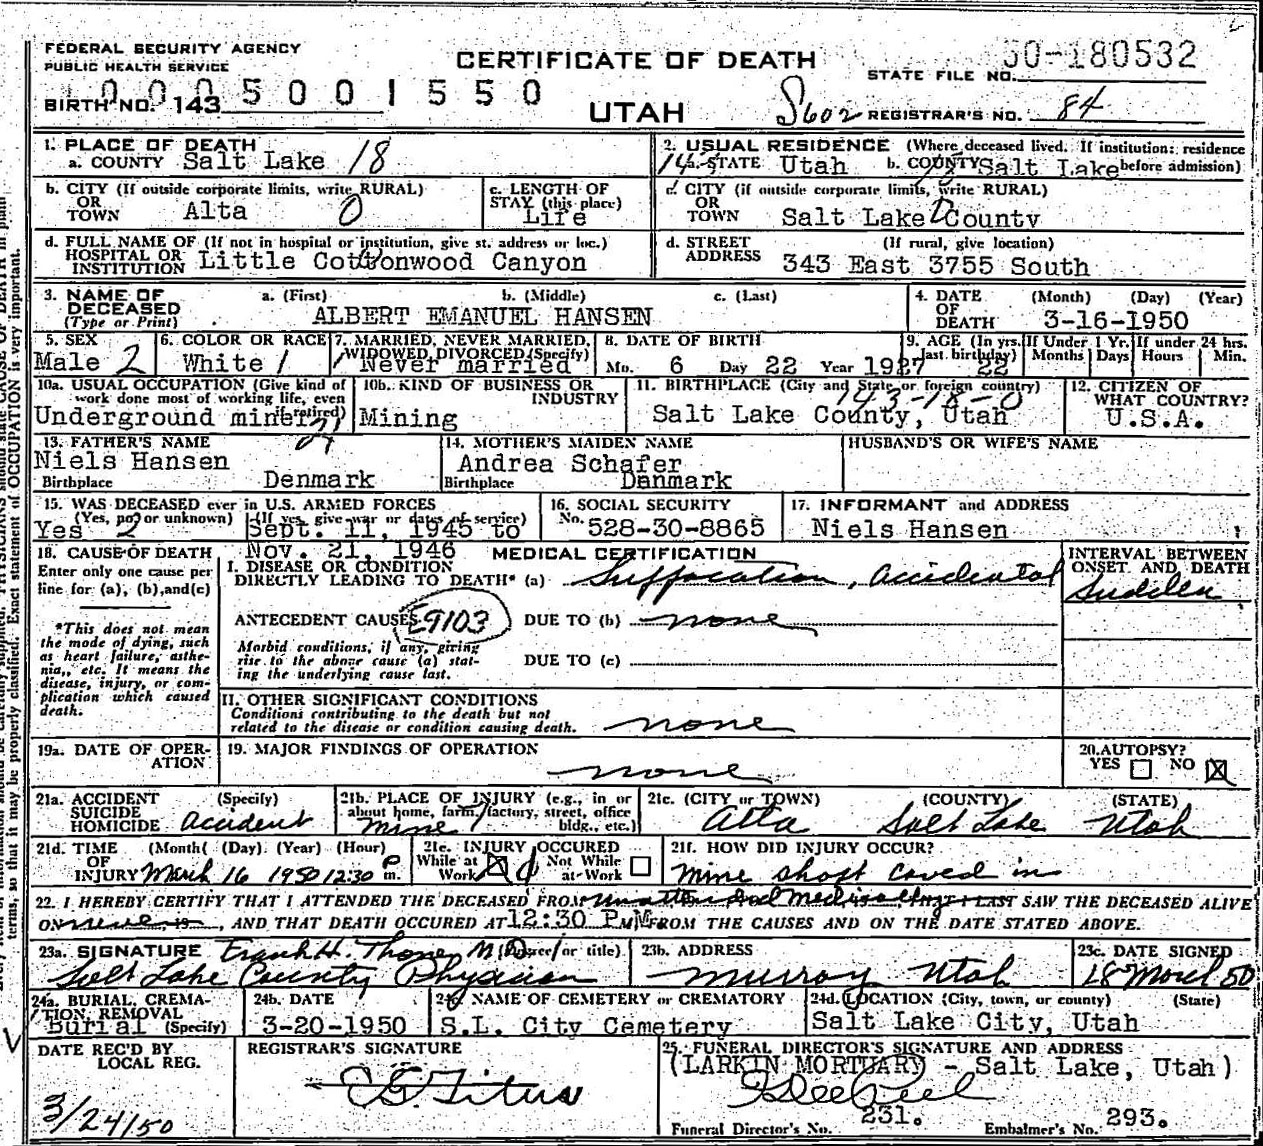 FEDERAL SECURITY AGENCY
PUBLIC HEALTH SERVICE
CERTIFICATE OF DEATH
STATE FILE NO. 50-180532
BIRTH NO. 143
0005001550
UTAH
S602 REGISTRAR'S NO. 84
1. PLACE OF DEATH
a. COUNTY Salt Lake 18
2. USUAL RESIDENCE (Where deceased lived. If institution: residence before admission)
a. STATE Utah b. COUNTY Salt Lake
b. CITY (If outside corporate limits, write RURAL) OR TOWN Alta 0
c. LENGTH OF STAY (this place) Life
c. CITY (if outside corporate limits, write RURAL) OR TOWN Salt Lake County
d. FULL NAME OF (If not in hospital or institution, give st. address or loc.) HOSPITAL OR INSTITUTION Little Cottonwood Canyon
d. STREET ADDRESS (If rural, give location) 343 East 3755 South
3. NAME OF DECEASED (Type or Print) a. (First) b. (Middle) c. (Last)
ALBERT EMANUEL HANSEN
4. DATE OF DEATH (Month) (Day) (Year)
3-16-1950
5. SEX Male 2
6. COLOR OR RACE White 1
7. MARRIED, NEVER MARRIED, WIDOWED, DIVORCED (Specify) 1 Never married
8. DATE OF BIRTH Mo. 6 Day 22 Year 1927
9. AGE (In yrs. last birthday) 22 If Under 1 Yr. Months Days If under 24 hrs. Hours Min.
10a. USUAL OCCUPATION (Give kind of work done most of working life, even if retired) Underground miner
10b. KIND OF BUSINESS OR INDUSTRY Mining
11. BIRTHPLACE (City and State or foreign country) 143-18-0
Salt Lake County, Utah
12. CITIZEN OF WHAT COUNTRY? U.S.A.
13. FATHER'S NAME Niels Hansen
Birthplace Denmark
14. MOTHER'S MAIDEN NAME Andrea Schafer
Birthplace Danmark
HUSBAND'S OR WIFE'S NAME
15. WAS DECEASED ever in U.S. ARMED FORCES (Yes, no, or unknown) Yes 2
(If yes, give war or dates of service) Sept. 11, 1945 to
Nov. 21, 1946
16. SOCIAL SECURITY No. 528-30-8865
17. INFORMANT and ADDRESS Niels Hansen
18. CAUSE OF DEATH
Enter only one cause per line for (a), (b), and (c)
*This does not mean the mode of dying, such as heart failure, asthenia,, etc. It means the disease, injury, or complication which caused death.
MEDICAL CERTIFICATION
I. DISEASE OR CONDITION DIRECTLY LEADING TO DEATH* (a) Suffocation, accidental
INTERVAL BETWEEN ONSET AND DEATH Sudden
ANTECEDENT CAUSES E9103 DUE TO (b) none
Morbid conditions, if any, giving rise to the above cause (a) stating the underlying cause last.
DUE TO (c)
II. OTHER SIGNIFICANT CONDITIONS
Conditions contributing to the death but not related to the disease or condition causing death. none
19a. DATE OF OPERATION
19. MAJOR FINDINGS OF OPERATION none
20. AUTOPSY? YES NO X
21a. ACCIDENT SUICIDE HOMICIDE (Specify) accident
21b. PLACE OF INJURY (e.g., in or about home, farm, factory, street, office bldg., etc.) mine
21c. (CITY or TOWN) (COUNTY) (STATE)
Alta Salt Lake Utah
21d. TIME OF INJURY (Month) (Day) (Year) (Hour) March 16 1950 12:30 P m.
21e. INJURY OCCURED While at Work X Not While at Work
21f. HOW DID INJURY OCCUR? mine shaft caved in
22. I HEREBY CERTIFY THAT I ATTENDED THE DECEASED FROM unattended medically THAT I LAST SAW THE DECEASED ALIVE
ON never, 19, AND THAT DEATH OCCURED AT 12:30 P.M. FROM THE CAUSES AND ON THE DATE STATED ABOVE.
23a. SIGNATURE Frank H. Thone MD (Degree or title)
Salt Lake County Physician
23b. ADDRESS Murray Utah
23c. DATE SIGNED 18 March 50
24a. BURIAL, CREMATION, REMOVAL (Specify) Burial
24b. DATE 3-20-1950
24c. NAME OF CEMETERY or CREMATORY S.L. City Cemetery
24d. LOCATION (City, town, or county) (State) Salt Lake City, Utah
DATE REC'D BY LOCAL REG. 3/24/50
REGISTRAR'S SIGNATURE
25. FUNERAL DIRECTOR'S SIGNATURE AND ADDRESS
(LARKIN MORTUARY - Salt Lake, Utah)
Funeral Director's No. 231. Embalmer's No. 293.